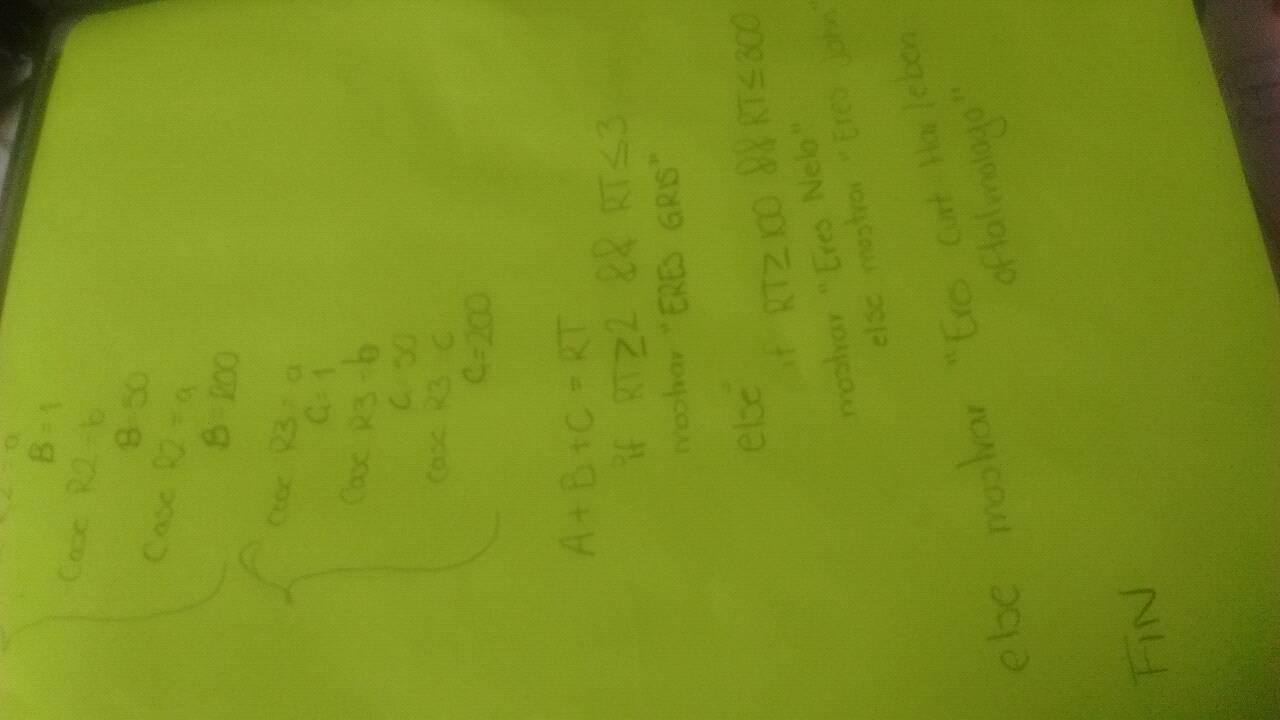 B=1
Case R2=b
B=50
Case R2=a
B=200
Case R3=a
C=1
Case R3=b
C=50
Case R3=c
C=200
A+B+C=RT
if RT≥2 && RT≤3
mostrar "ERES GRIS"
else
if RT≥100 && RT≤300
mostrar "Eres Nebo"
else mostrar "Eres John"
else mostrar "Eres Curt
oftalmologo"
FIN